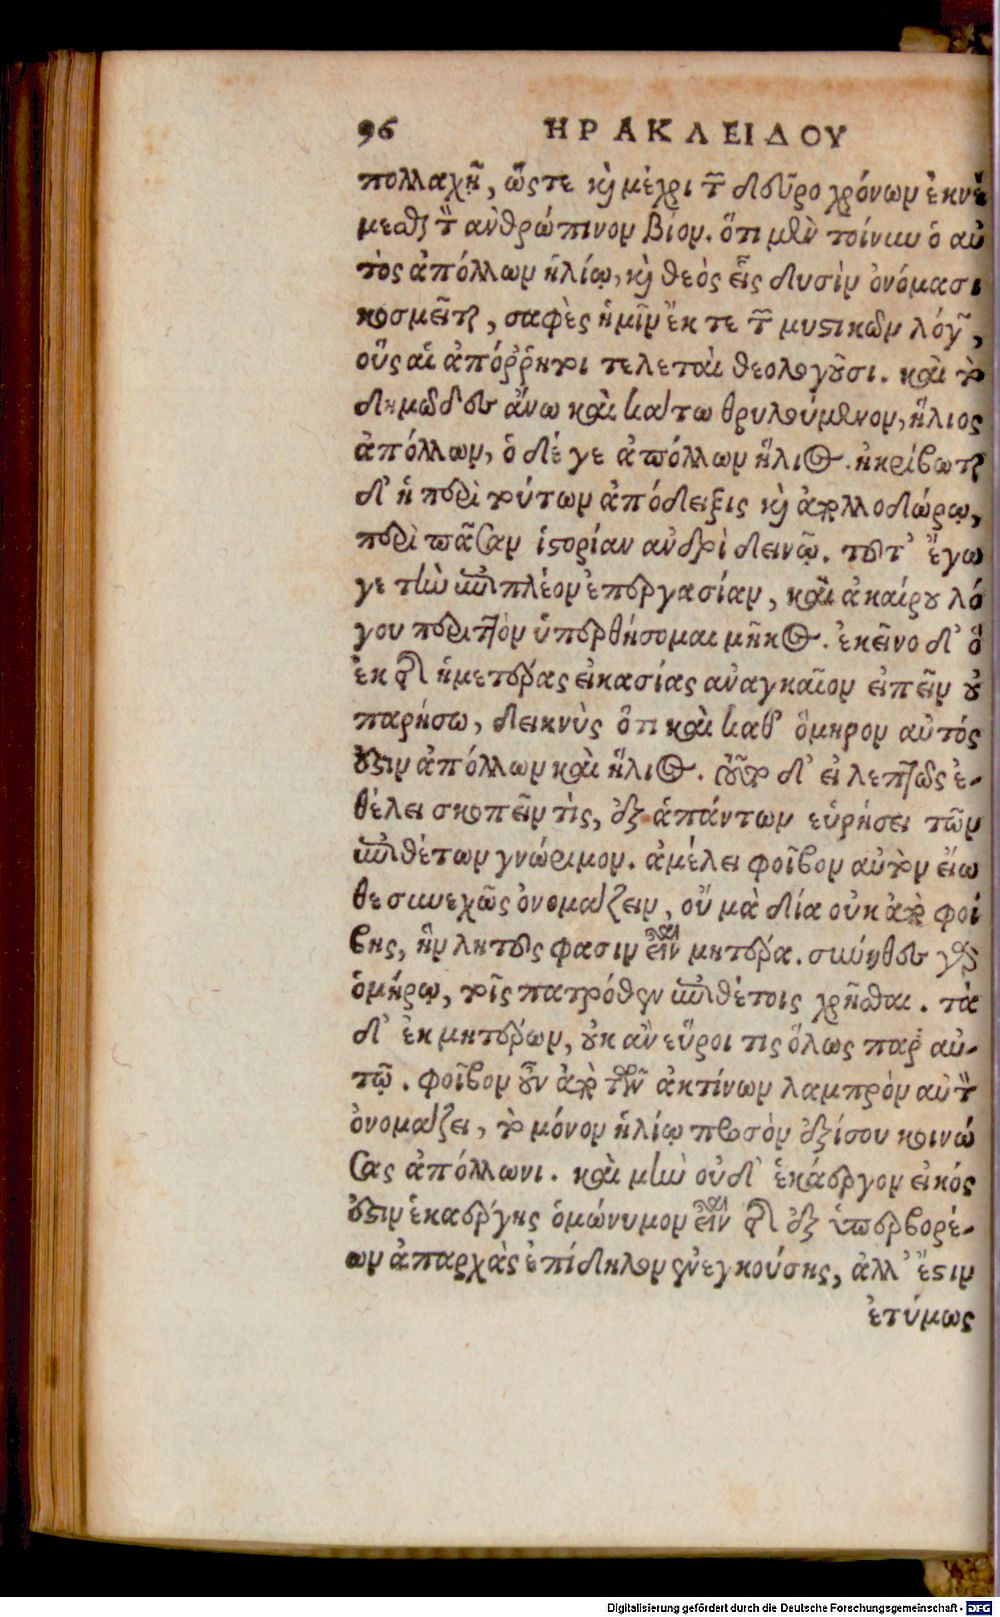 96 ΗΡΑΚΛΕΙΔΟΥ
πολλαχῆ, ὥςτε καὶ μέχρι τοῦ δεῦρο χρόνων ἐκνε
μεσθαι τὸν ἀνθρώπινον βίον. ὅτι μὲν τοίνυν ὁ αὐ
τὸς ἀπόλλων ἡλίῳ, καὶ θεὸς εἷς δυσὶν ὀνόμασι
κοσμεῖται, σαφὲς ἡμῖν ἔκ τε τῶν μυστικῶν λόγων,
οὓς αἱ ἀπόῤῥητοι τελεταὶ θεολογοῦσι. καὶ τὸ
δημῶδες ἄνω καὶ κάτω θρυλούμενον, ἥλιος
ἀπόλλων, ὁ δέ γε ἀπόλλων ἥλιος. ἠκρίβωται
δ' ἡ περὶ τούτων ἀπόδειξις καὶ ἀπολλοδώρῳ,
περὶ πᾶσαν ἱστορίαν ἀνδρὶ δεινῷ. τοῦτ' ἔγω
γε τὴν ἐπιπλέον ἐπεργασίαν, καὶ ἀκαίρου λό
γου περιττὸν ὑπερθήσομαι μῆκος. ἐκεῖνο δ' ὃ
ἐκ τῆς ἡμετέρας εἰκασίας ἀναγκαῖον εἰπεῖν οὐ
παρήσω, δεικνὺς ὅτι καὶ καθ' ὅμηρον αὐτός
ἐστιν ἀπόλλων καὶ ἥλιος. τοῦτο δ' εἰ λεπτῶς ἐ-
θέλει σκοπεῖν τὶς, ἐξ ἁπάντων εὑρήσει τῶν
ἐπιθέτων γνώριμον. ἀμέλει φοῖβον αὐτὸν εἴω
θε συνεχῶς ὀνομάζειν, οὔ μὰ δία οὐκ ἀπὸ φοί
βης, ἣν λητοῦς φασιν εἶναι μητέρα. σύνηθες γὰρ
ὁμήρῳ, τοῖς πατρόθεν ἐπιθέτοις χρῆσθαι. τὰ
δ' ἐκ μητέρων, οὐκ ἂν εὕροι τις ὅλως παρ' αὐ-
τῷ. φοῖβον οὖν ἀπὸ τῶν ἀκτίνων λαμπρὸν αὐτὸν
ὀνομάζει, τὸ μόνον ἡλίῳ προσὸν ἐξίσου κοινώ
σας ἀπόλλωνι. καὶ μὴν οὐδ' ἑκάεργον εἰκός
ἐστιν ἑκαέργης ὁμώνυμον εἶναι τῆς ἐξ ὑπερβορέ-
ων ἀπαρχὰς ἐπίδηλον ἐνεγκούσης, ἀλλ' ἔστιν
ἐτύμως
Digitalisierung gefördert durch die Deutsche Forschungsgemeinschaft - DFG